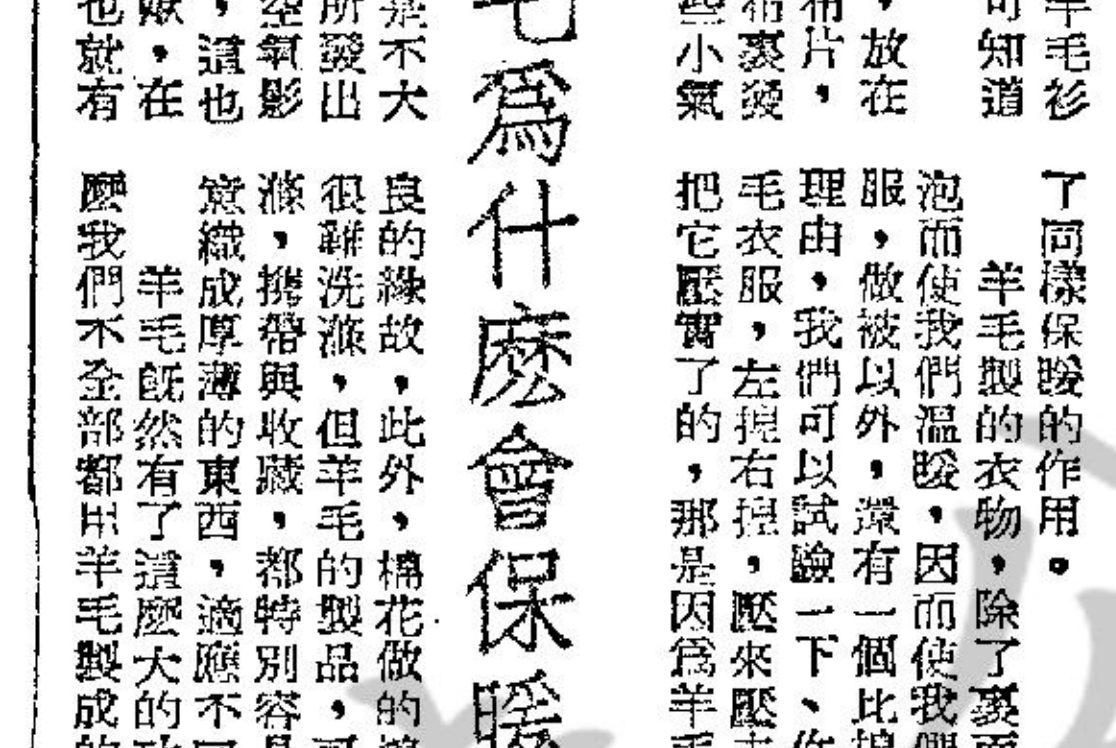 羊毛衫
可知道
，放在
布片，
布裏
些小氣
了同樣保暖的作用。
羊毛製的衣物，除了裏
泡而使我們溫暖，因而使我
服，做被以外，還有一個比
理由，我們可以試驗一下、作
毛衣服，左揑右揑，壓來壓
把它壓實了的，那是因爲羊毛
毛爲什麽會保暖
是不大
所發出
空氣影
，這也
，在
也就有
良的緣故，此外，棉花做的
很難洗滌，但羊毛的製品，可
滌，攜帶與收藏，都特別容
意織成厚薄的東西，適應不
羊毛既然有了這麼大的
麼我們不全部都用羊毛製成的